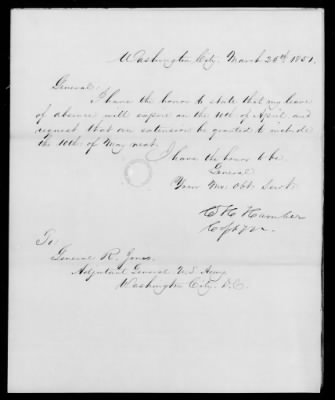 Washington City, March 26th 1851.
General.
I have the honor to state that my leave
of absence will expire on the 10th of April and
request that an extension be granted to include
the 10th of May next.
I have the honor to be,
General
Your Mo. Obt. Servt.
Capt
To
General R. Jones.
Adjutant General U.S. Army
Washington City, D.C.